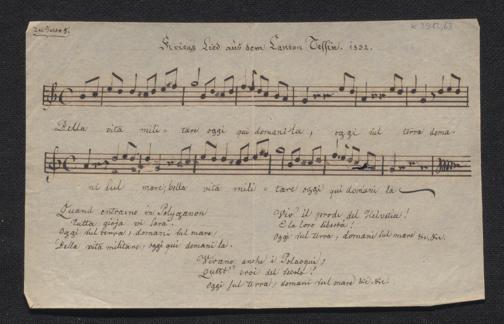 Kriegs Lied aus dem Canton Tessin. 1832.
Della vita mili - tare oggi qui domani la, oggi sul terra doma-
ni sul mare, bella vita mili - tare oggi qui domani la
Quand entrarne in
Tutta gioja vi sara.
Oggi sul terra, domani sul mare
Della vita militare, oggi qui domani la.
Viv' il prode del Helvetia!
E la loro libertà!
Oggi sul terra, domani sul mare etc. etc.
Vivano anche i
eroi del secolo!
Oggi sul terra, domani sul mare etc. etc.